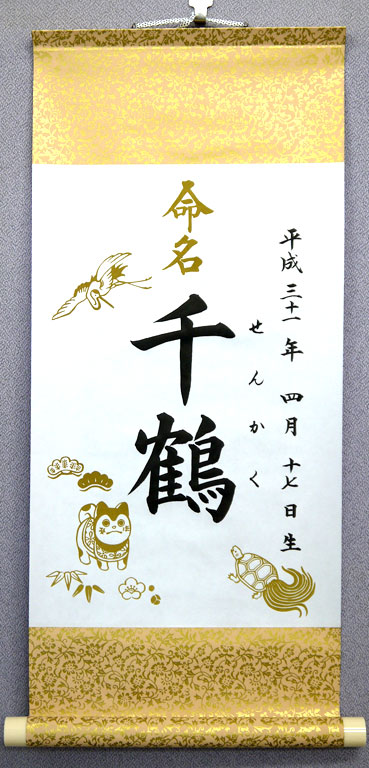 平成三十一年 四月 十七日生
命名
千鶴
せんかく